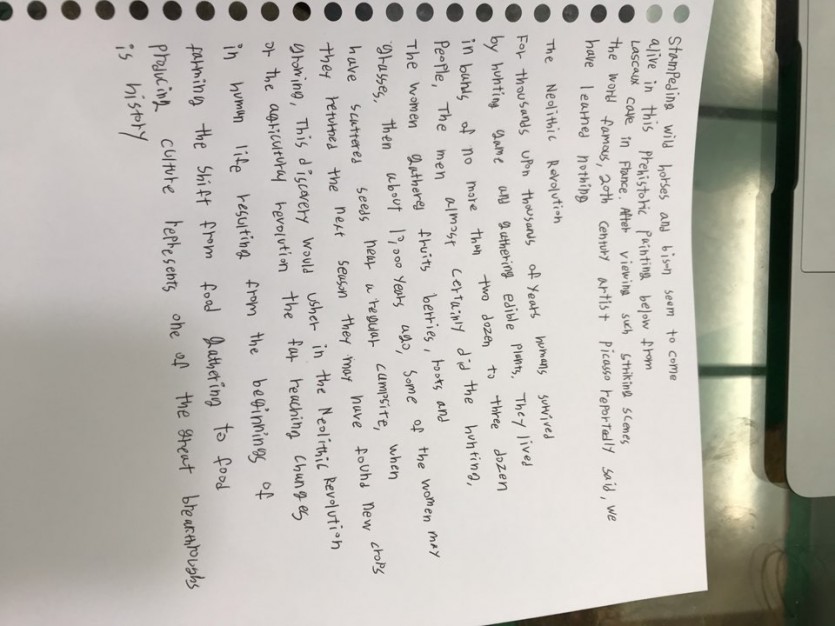 Stampeding wild horses and bison seem to come
alive in this prehistoric painting below from
Lascaux cave in France. After viewing such striking scenes
the word famous, 20th century artist picasso reportedly said, we
have learned nothing
The Neolithic Revolution
For thousands upon thousands of years humans survived
by hunting game and gathering edible plants. They lived
in bands of no more than two dozen to three dozen
People, The men almost certainly did the hunting,
The women gathered fruits berries, roots and
grasses. Then about 12,000 years ago, some of the women may
have scattered seeds near a regular campsite, when
they returned the next season they may have found new crops
growing, This discovery would usher in the Neolithic Revolution
or the agricultural revolution the far reaching changes
in human life resulting from the beginnings of
farming the shift from food gathering to food
producing culture represents one of the great breakthroughs
is history